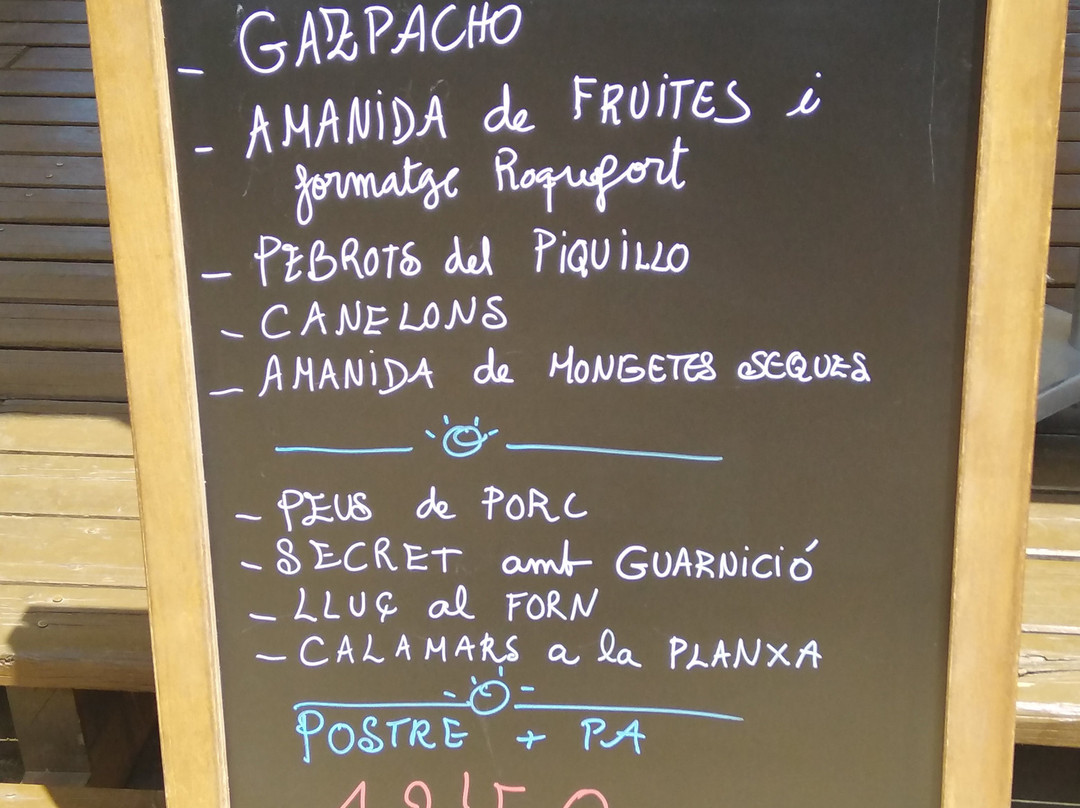 - GAZPACHO
- AMANIDA de FRUITES i
formatge Roquefort
- PEBROTS del PIQUILLO
- CANELONS
- AMANIDA de MONGETES SEQUES
- PEUS de PORC
- SECRET amb GUARNICIÓ
- LLUÇ al FORN
- CALAMARS a la PLANXA
POSTRE + PA